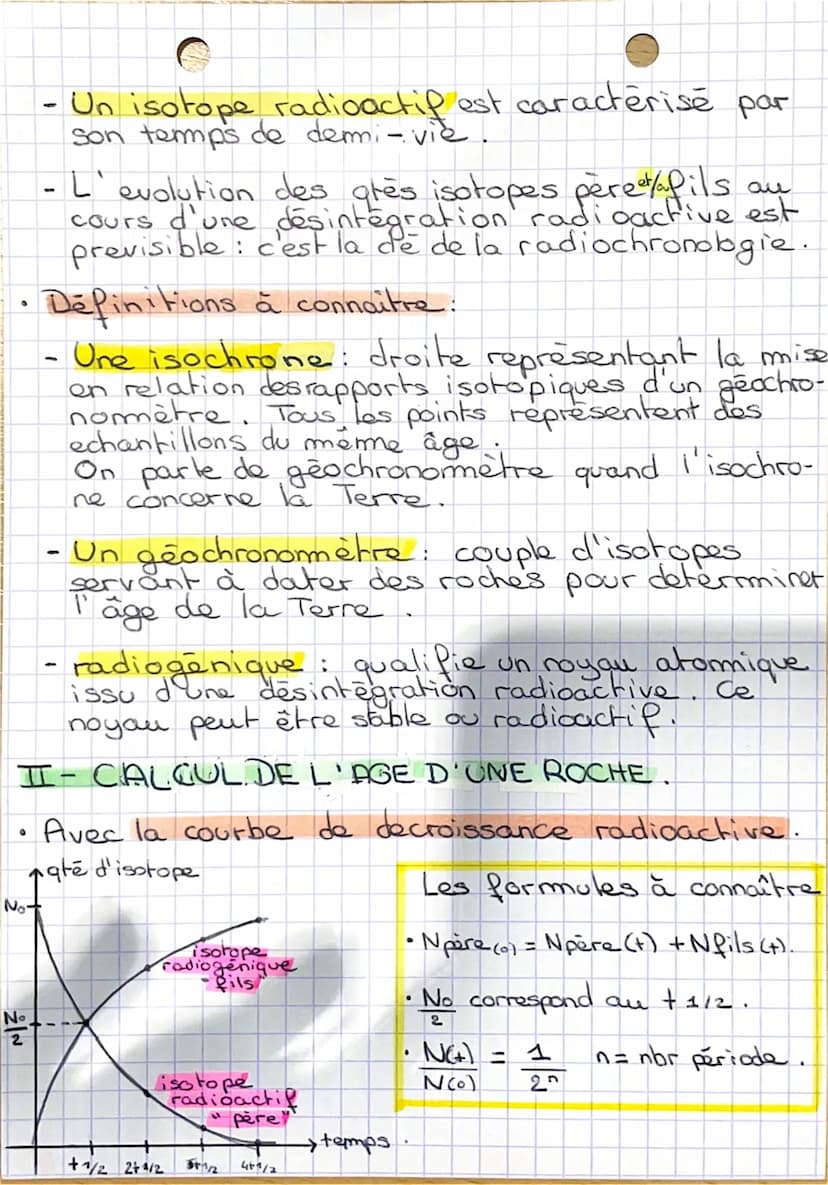 - Un isotope radioactif est caractérisé par
son temps de demi-vie.
- L'evolution des qtés isotopes père et/a fils au
cours d'une désintégration radioactive est
previsible : c'est la clé de la radiochronologie.
• Définitions à connaître :
- Une isochrone : droite représentant la mise
en relation des rapports isotopiques d'un géochro-
nomètre. Tous les points représentent des
echantillons du même âge.
On parle de géochronomètre quand l'isochro-
ne concerne la Terre.
- Un géochronomètre : couple d'isotopes
servant à dater des roches pour determiner
l'âge de la Terre.
- radiogénique : qualifie un noyau atomique
issu d'une désintégration radioactive. Ce
noyau peut être stable ou radioactif.
II - CALCUL DE L'AGE D'UNE ROCHE.
• Avec la courbe de decroissance radioactive.
qté d'isotope
N₀
isotope
radiogénique
"fils"
N₀/2
isotope
radioactif
"père"
temps.
t 1/2 2t 1/2 3t 1/2 4t 1/2
Les formules à connaître
• Npère (0) = Npère (t) + Nfils (t).
• N₀/2 correspond au t 1/2.
• N(t)/N(0) = 1/2ⁿ n = nbr période.